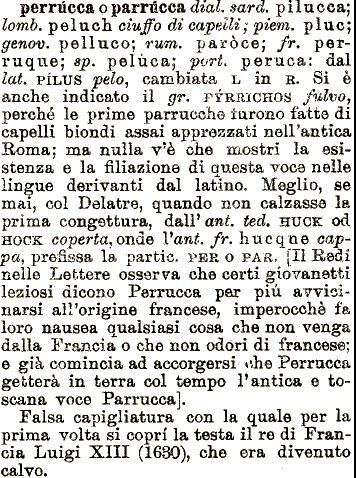 perrúcca o parrúcca dial. sard. pilucca;
lomb. peluch ciuffo di capelli; piem. pluc;
genov. pelluco; rum. paròce; fr. per-
ruque; sp. pelùca; port. peruca: dal
lat. PÍLUS pelo, cambiata L in R. Si è
anche indicato il gr. PÝRRICHOS fulvo,
perché le prime parrucche furono fatte di
capelli biondi assai apprezzati nell'antica
Roma; ma nulla v'è che mostri la esi-
stenza e la filiazione di questa voce nelle
lingue derivanti dal latino. Meglio, se
mai, col Delatre, quando non calzasse la
prima congettura, dall' ant. ted. HUCK od
HOCK coperta, onde l'ant. fr. hucque cap-
pa, prefissa la partic. PER O PAR. [Il Redi
nelle Lettere osserva che certi giovanetti
leziosi dicono Perrucca per piú avvici-
narsi all'origine francese, imperocchè fa
loro nausea qualsiasi cosa che non venga
dalla Francia o che non odori di francese;
e già comincia ad accorgersi che Perrucca
getterà in terra col tempo l'antica e to-
scana voce Parrucca].
Falsa capigliatura con la quale per la
prima volta si coprí la testa il re di Fran-
cia Luigi XIII (1630), che era divenuto
calvo.